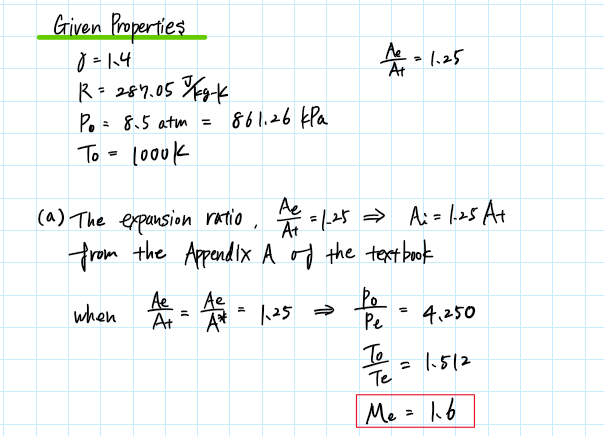 Given Properties
γ = 1.4
Ae/At = 1.25
R = 287.05 J/kg-K
P₀ = 8.5 atm = 861.26 kPa
T₀ = 1000 K
(a) The expansion ratio, Ae/At = 1.25 ⇒ Ai = 1.25 At
from the Appendix A of the textbook
when Ae/At = Ae/A* = 1.25 ⇒ P₀/Pe = 4.250
T₀/Te = 1.512
Me = 1.6